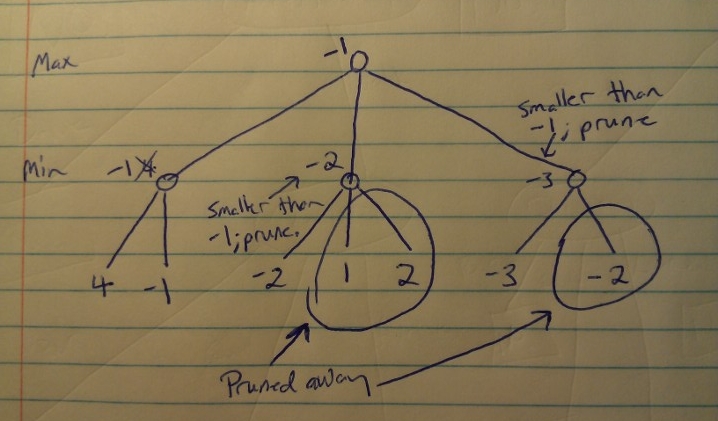 Max
-1
smaller than
-1; prune
Min
-1 4
-2
-3
smaller than
-1; prune.
4 -1 -2 1 2 -3 -2
Pruned away